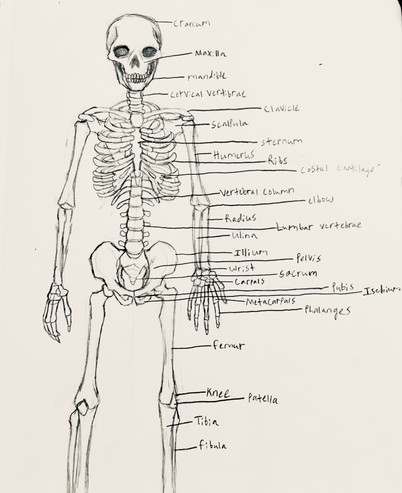 Cranium
Maxilla
mandible
cervical vertibrae
clavicle
scalpula
sternum
Humerus
Ribs
costal cartilage
vertebral column
elbow
Radius
Lumbar vertebrae
Ulina
Illium
Pelvis
wrist
sacrum
carpals
Pubis
Ischium
Metacarpals
Phalanges
Femur
Knee
Patella
Tibia
fibula